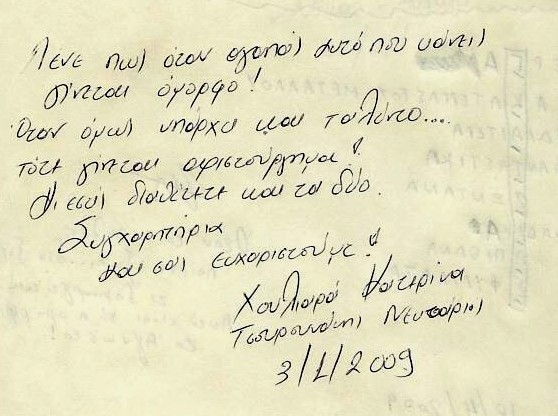 Λένε πως όταν αγαπάς αυτό που κάνεις
γίνεται όμορφο!
Όταν όμως υπάρχει και ταλέντο....
τότε γίνεται αριστούργημα!
Κι εσείς διαθέτετε και τα δύο.
Συγχαρητήρια
και σας ευχαριστούμε!
Χουλιαρά Κατερίνα
3/1/2009